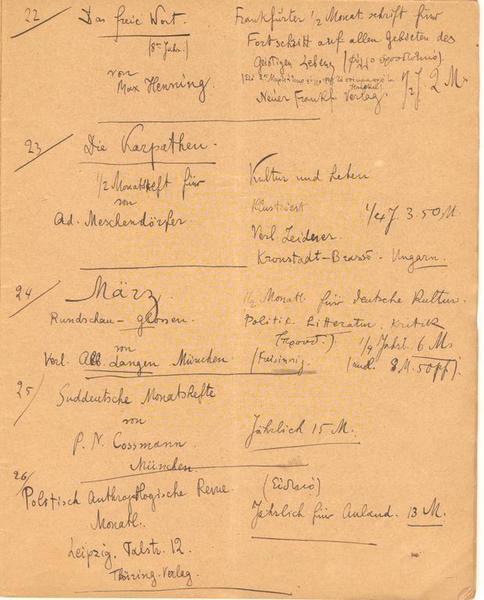 22/ Das freie Wort.
(8te Jahr.)
von
Max Henning.
Frankfürter 1/2 Monatschrift für
Fortschritt auf allen Gebieten des
Geistigen Lebens (φύλλο προοδευτικό).
Neuer Frankf Verlag. 1/2 J. 2 M.
23/ Die Karpathen.
1/2 Monatsheft für
von
Ad. Meschendörfer.
Kultur und Leben
Illustriert 1/4 J. 3.50 M.
Verl. Zeidner.
Kronstadt-Brassó. Ungarn.
24/ März
Rundschau-glossen.
von
Verl. Alb. Langen. München
1/2 Monatl. für deutsche Kultur.
Politik Litteratur. Kritik
(Προοδ.) 1/4 Jahrl. 6 M.
(Freisinnig. 8 M. 50 pf).
25/ Suddeutsche Monatshefte
von
P. N. Cossmann.
München.
Jährlich 15 M.
26/ Politisch Anthropologische Revue.
Monatl.
Leipzig. Talstr. 12.
Thüring. Verlag.
(Εἰδικό)
Jährlich für Auland. 13 M.